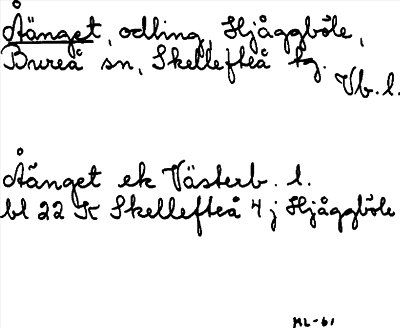 Åänget, odling, Hjåggböle,
Bureå sn, Skellefteå tg.
Vb. l.
Åänget ek Västerb. l.
bl 22 K Skellefteå 4 j Hjåggböle
ML-61